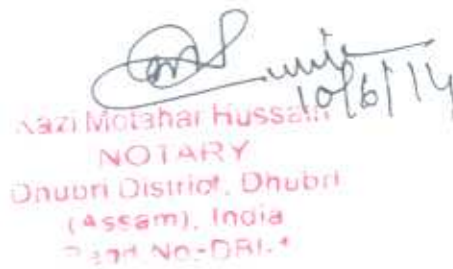 10/6/14
Kazi Motahar Hussain
NOTARY
Dhubri District, Dhubri
(Assam), India
Regd No-DBI-1